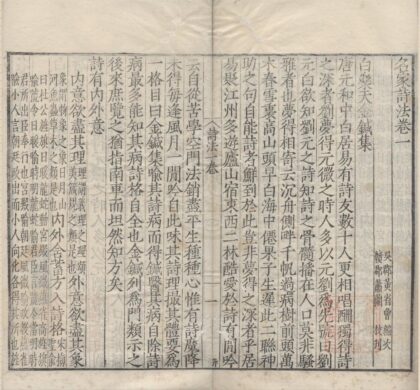 名家詩法卷一
吳郡黃省曾編次
白樂天金鍼集
唐元和中白居易有詩友數十人更相唱酬獨得詩
之深者劉夢得元微之時人多以元劉爲號曰劉
元白欲知劉元之詩知詩之骨髓播在人口莫非騷
雅者也夢得相寄云沉舟側畔千帆過病樹前頭萬
木春雪裏高山頭早白海中僊果子生遲此二聯神
助之句自能詩者鮮到於此豈非夢得之深者乎居
易貶江州多遊廬山宿東西二林酷愛於詩有閒吟
詩法一卷
一
云自從苦學空門法銷盡平生種種心惟有詩魔降
未得每逢風月一閒吟自此味其詩理撮其體要爲
一格目曰金鍼集喻其詩病而得鍼醫其病自除詩
病最多能知其病詩格自全也金鍼列爲門類示之
後來庶覽之猶指南車而坦然知方矣
詩有內外意
內意欲盡其理外意欲盡其象
內外含蓄方入詩格